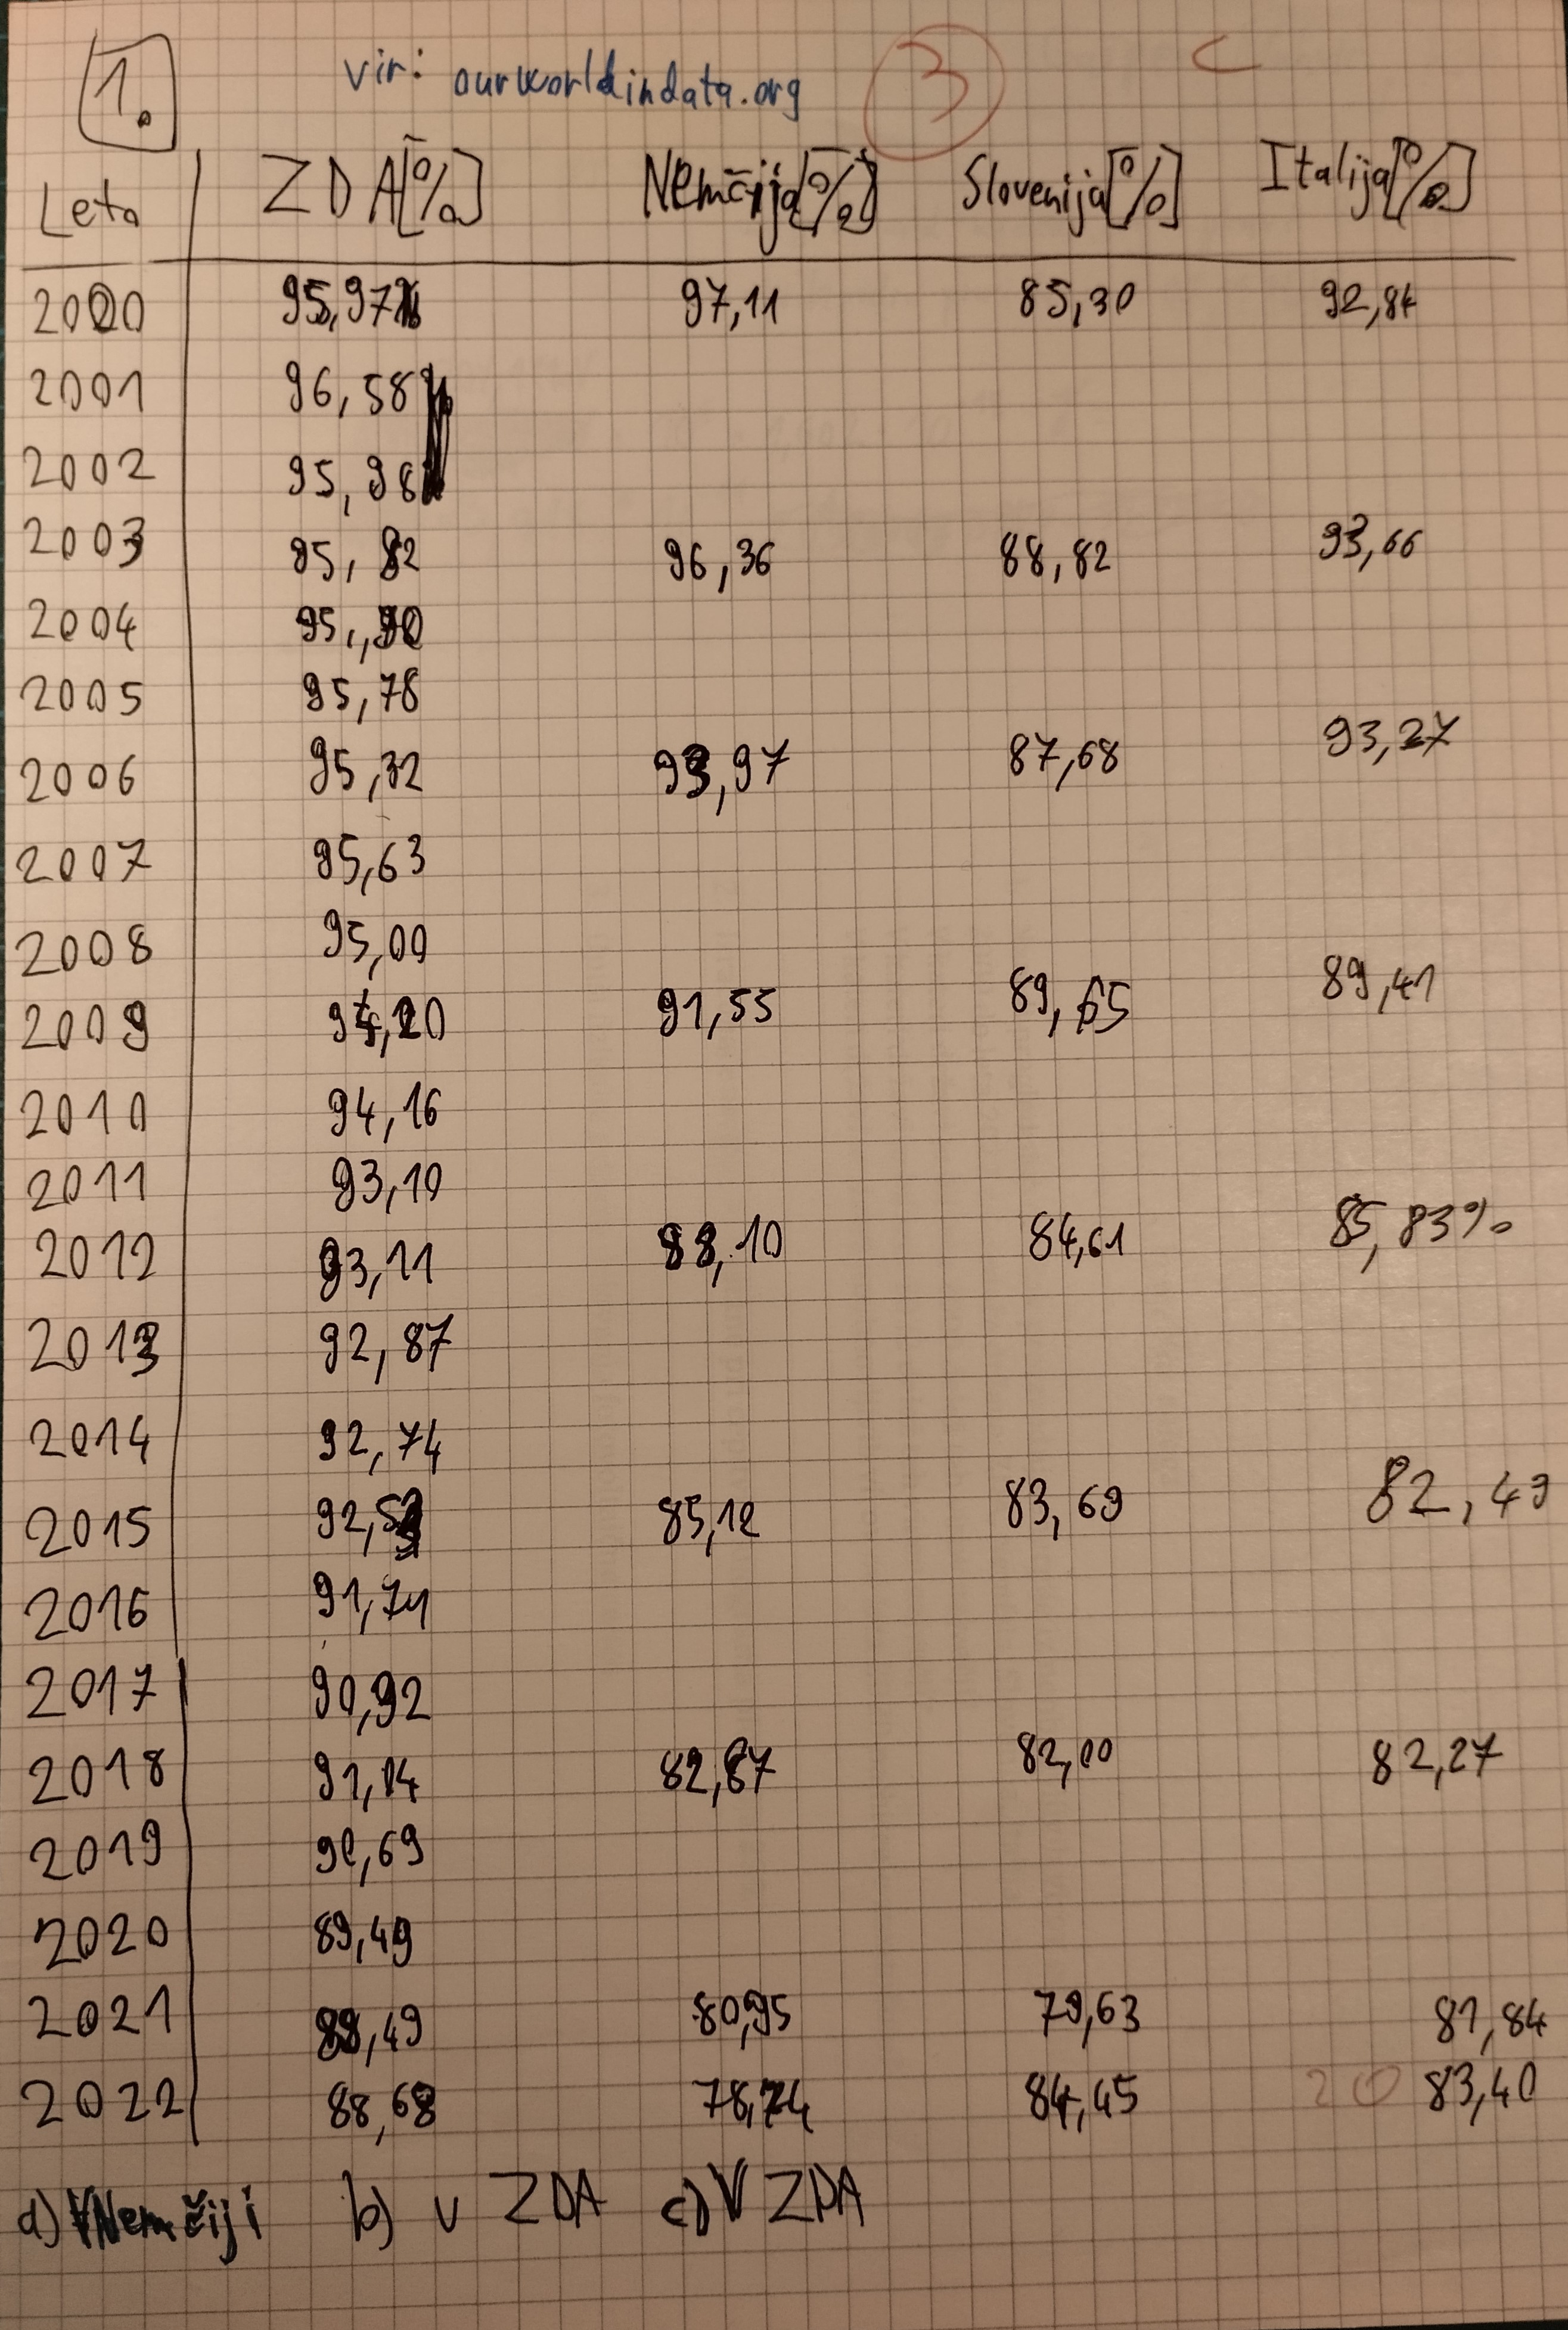 1. vir: ourworldindata.org 3
Leto ZDA[%] Nemčija[%] Slovenija[%] Italija[%]
2000 95,97 97,11 85,30 92,84
2001 96,58
2002 95,98
2003 95,82 96,36 88,82 93,66
2004 95,90
2005 95,78
2006 95,32 93,97 87,68 93,27
2007 95,63
2008 95,00
2009 94,20 91,55 89,65 89,41
2010 94,16
2011 93,10
2012 93,11 88,10 84,61 85,83%
2013 92,87
2014 92,74
2015 85,12 83,69 82,49
2016 91,71
2017 90,92
2018 91,14 82,87 82,00 82,27
2019 90,69
2020 89,49
2021 88,49 80,95 79,63 81,84
2022 88,68 78,74 84,45 20 83,40
a) V Nemčiji b) v ZDA c) V ZDA